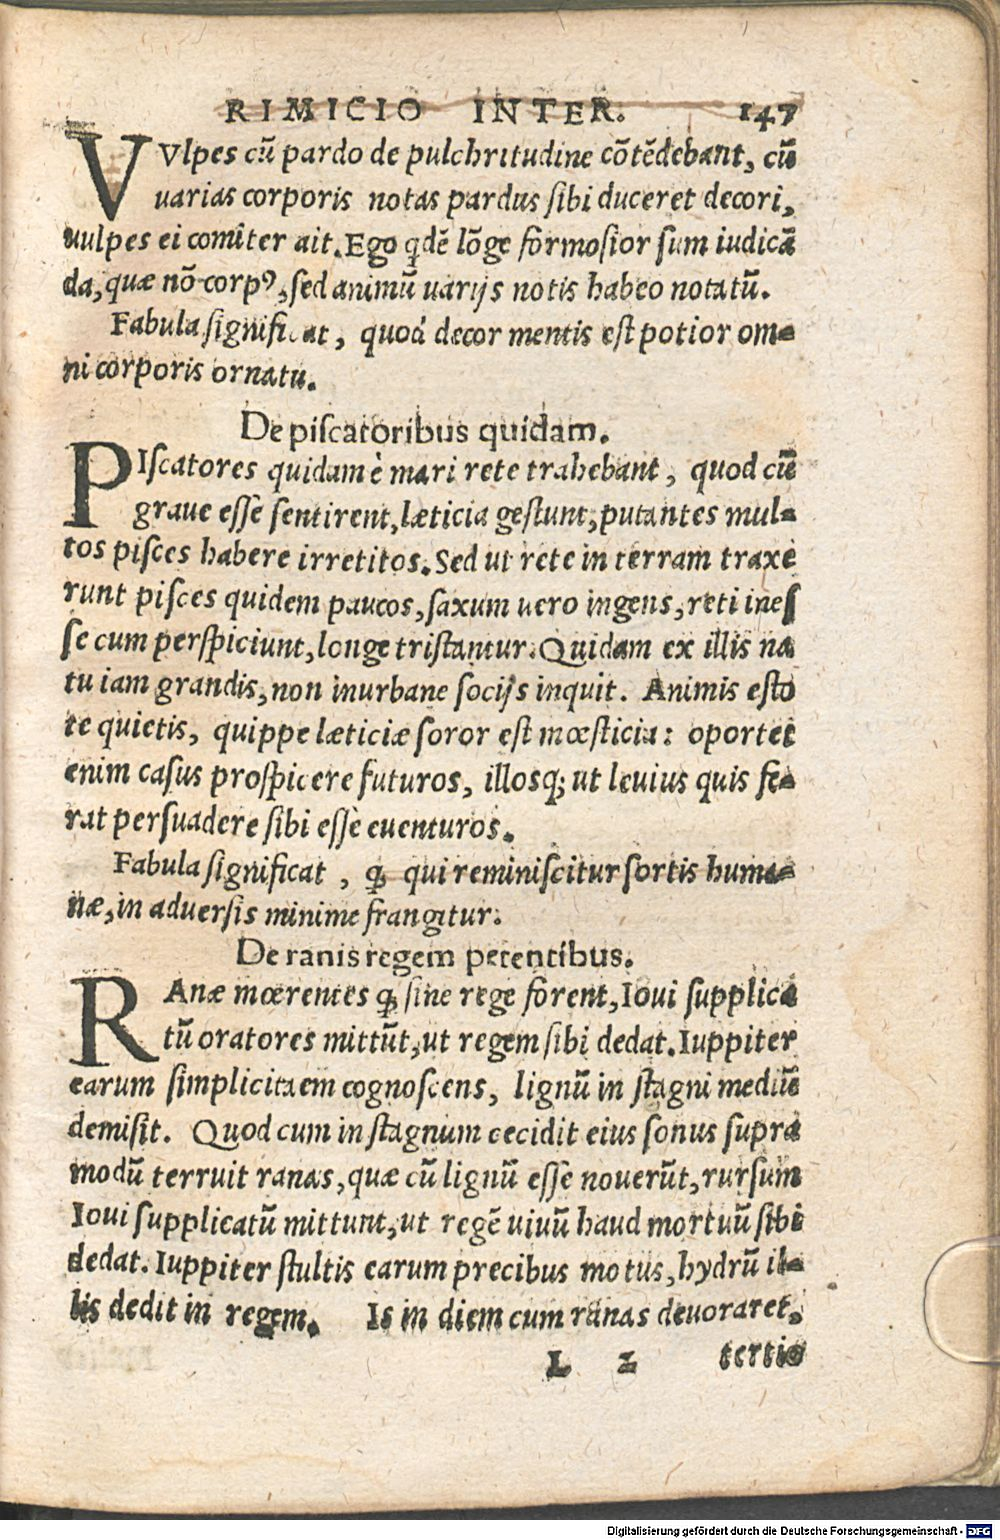 RIMICIO INTER. 147
VVlpes cũ pardo de pulchritudine cõtẽdebant, cũ
uarias corporis notas pardus sibi duceret decori,
uulpes ei comiter ait. Ego qdẽ lõge formosior sum iudicã
da, quæ nõ corpꝰ, sed animũ uarijs notis habeo notatũ.
Fabula significat, quod decor mentis est potior om-
ni corporis ornatu.
De piscatoribus quidam.
PIscatores quidam è mari rete trahebant, quod cũ
graue esse sentirent, læticia gestunt, putantes mul-
tos pisces habere irretitos. Sed ut rete in terram traxe
runt pisces quidem paucos, saxum uero ingens, reti ines
se cum perspiciunt, longe tristantur. Quidam ex illis na
tu iam grandis, non inurbane socijs inquit. Animis esto
te quietis, quippe læticiæ soror est mœsticia: oportet
enim casus prospicere futuros, illosq; ut leuius quis fe-
rat persuadere sibi esse euenturos.
Fabula significat, ꝙ qui reminiscitur sortis huma-
næ, in aduersis minime frangitur.
De ranis regem petentibus.
RAnæ mœrentes ꝙ sine rege forent, Ioui supplica
tũ oratores mittũt, ut regem sibi dedat. Iuppiter
earum simplicitaem cognoscens, lignũ in stagni mediũ
demisit. Quod cum in stagnum cecidit eius sonus supra
modũ terruit ranas, quæ cũ lignũ esse nouerũt, rursum
Ioui supplicatũ mittunt, ut regẽ uiuũ haud mortuũ sibi
dedat. Iuppiter stultis earum precibus motus, hydrũ il-
lis dedit in regem. Is in diem cum ranas deuoraret,
L 2 tertio
Digitalisierung gefördert durch die Deutsche Forschungsgemeinschaft - DFG